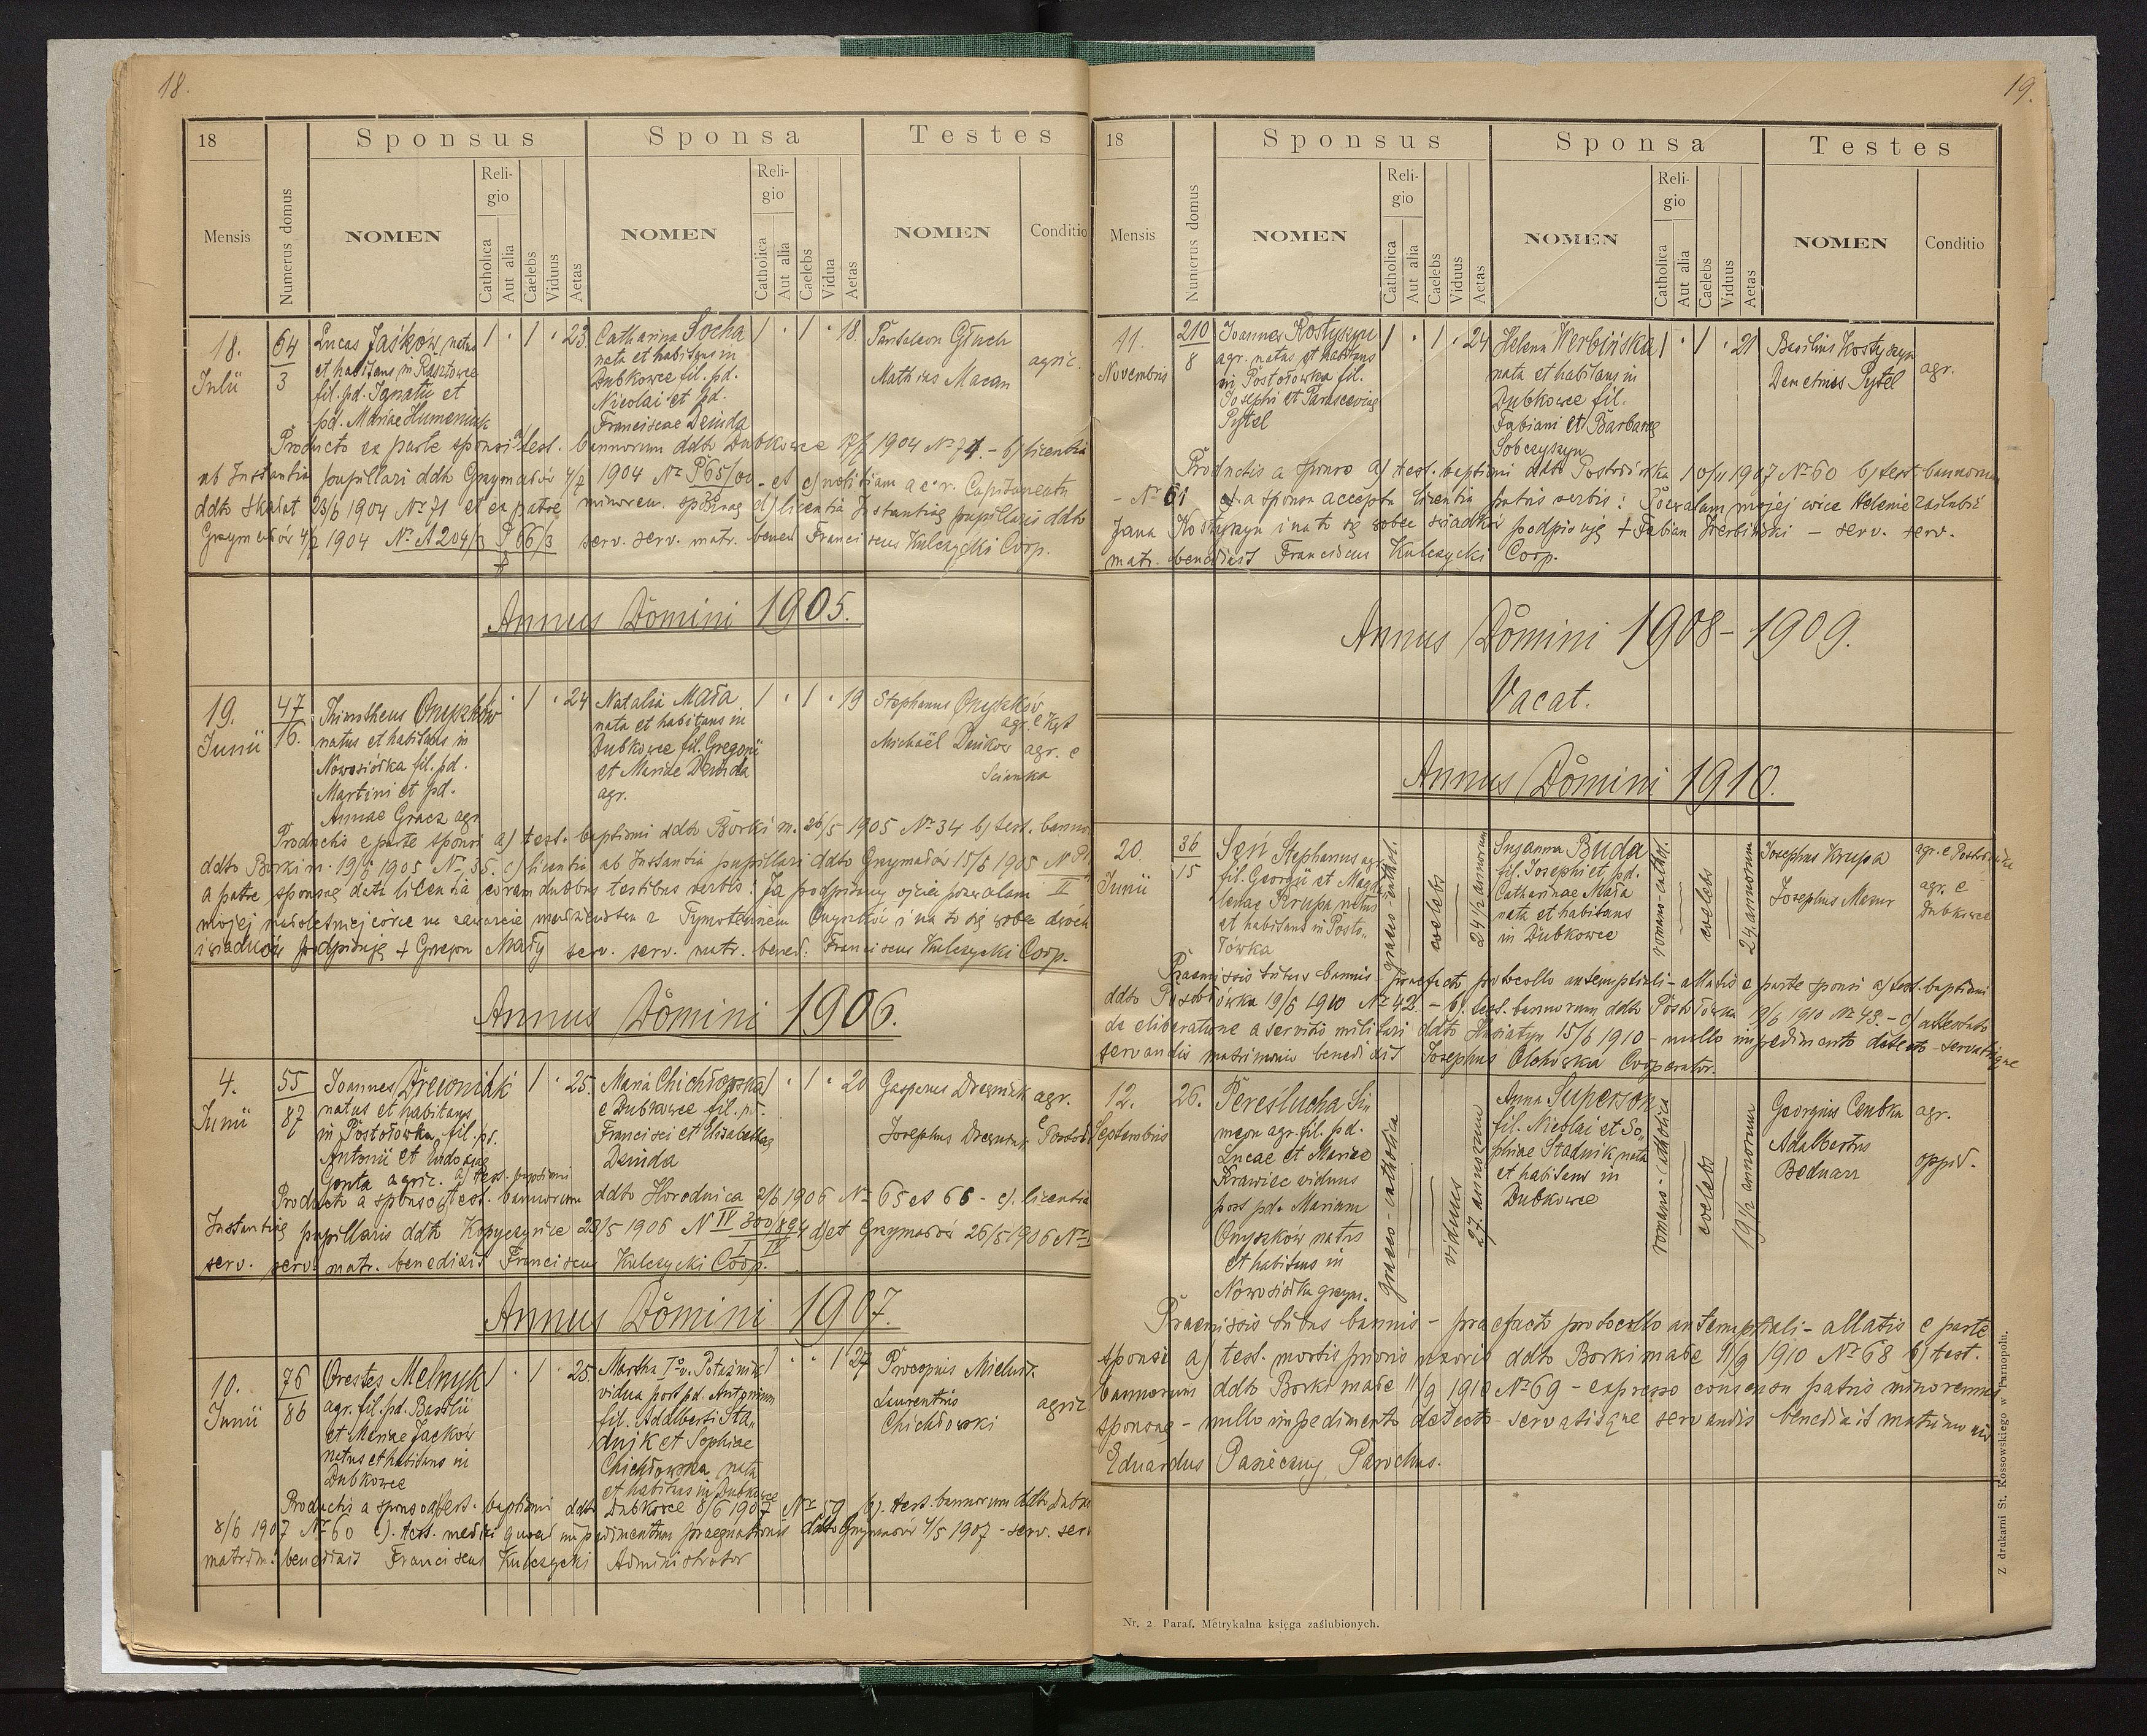 18.
18
Sponsus
Sponsa
Testes
Mensis
Numerus domus
NOMEN
Reli-
gio
Catholica
Aut alia
Caelebs
Viduus
Aetas
NOMEN
Reli-
gio
Catholica
Aut alia
Caelebs
Vidua
Aetas
NOMEN
Conditio
18.
Julii
64
3
Lucas Jaśków natus
et habitans in Rasztowce
fil. pd. Ignatii et
pd. Mariae Humeniuk
1 . 1 . 23
Catharina Socha
nata et habitans in
Dubkowce fil. pd.
Nicolai et pd.
Franciscae Dziuda
1 . 1 . 18.
Pantaleon Głuch
Mathias Macan
agric.
Producto ex parte sponsi a) test. bannorum ddto Dubkowce 17/7 1904 No 71. - b) licentia
ab Instantia pupillari ddto Grzymałów 4/7 1904 No P 65/00 - et c) notitiam a c. r. Capitaneatu
ddto Skałat 23/6 1904 No 71 et ex patre minoren. sponsae d) licentia Instantiae pupillaris ddto
Grzymałów 4/7 1904 No A 204/3 P 66/3 serv. serv. matr. bened Franciscus Kulczycki Coop.
Annus Domini 1905.
19.
Junii
47
16.
Timotheus Onyszków
natus et habitans in
Nowosiółka fil. pd.
Martini et pd.
Annae Gracz agr
. 1 . 24
Natalia Mała
nata et habitans in
Dubkowce fil. Gregorii
et Mariae Dziuda
agr.
1 . 1 . 19
Stephanus Onyszków
agr.
Michaël agr. e
Scianka
Productis e parte sponsi a) test. baptismi ddto Borki m. 26/5 1905 No 34 b) test. banno
ddto Borki m. 19/6 1905 No 35. c) licentia ab Instantia pupillari ddto Grzymałów 15/5 1905
a patre sponsae data licentia coram duobus testibus verbis: Ja podpisany ojciec pozwalam
mojej małoletniej córce na zawarcie małżeństwa z Tymoteuszem Onyszków i na to się wobec dwóch
świadków podpisuję + Grzegorz Mały serv. serv. matr. bened. Franciscus Kulczycki Coop.
Annus Domini 1906.
4.
Junii
55
87
Joannes Drewniak
natus et habitans
in Postołówka fil.
Antonii et Eudoxiae
Gonta agric.
1 . 25.
Maria Chichłowska
e Dubkowce fil.
Francisci et Elisabethae
Dziuda
1 . 1 . 20
Gasparus Drewniak
Josephus Drewniak
agr.
e
Producto a sponso a) test. baptismi test. bannorum ddto Horodnica 2/6 1906 No 65 et 66 - c). licentia
Instantiae pupillaris ddto Kopyczyńce 23/5 1906 N IV 300/894 d) et Grzymałów 26/5 1906 No
serv. serv. matr. benedixit Franciscus Kulczycki Coop.
Annus Domini 1907.
10.
Junii
76
86
Orestes Melnyk
agr. fil. pd. Basilii
et Mariae Jackow
natus et habitans in
Dubkowce
1 . 1 . 25.
Martha Io v. Potaźnik
vidua post pd. Antonium
fil. Adalberti Sta„
dnik et Sophiae
Chichłowska nata
et habitans in Dubkowce
1 . . 1 27
Procopius Mielnik
Laurentius
Chichłowski
agric
Productis a sponso a) test. baptismi ddto Dubkowce 8/6 1907 No 59 b). test. bannorum ddto Dubko
8/6 1907 No 60 c). test. medici quoad impedimentum praegnationis ddto Grzymałów 4/5 1907 - serv. serv
matrim. benedixit Franciscus Kulczycki Administrator
19.
18
Sponsus
Sponsa
Testes
Mensis
Numerus domus
NOMEN
Reli-
gio
Catholica
Aut alia
Caelebs
Viduus
Aetas
NOMEN
Reli-
gio
Catholica
Aut alia
Caelebs
Viduus
Aetas
NOMEN
Conditio
11.
Novembris
210
8
Joannes Kostyszyn
agr. natus et habitans
in Postołówka fil.
Josephi et Parasceviae
Pytel
1 . 1 . 24
Helena Werbińska
nata et habitans in
Dubkowce fil.
Fabiani et Barbarae
Sobczyszyn
1 . 1 . 21
Basilius Kostyszyn
Demetrius Pytel
agr.
Productis a sponso a) test. baptismi ddto Postołówka 10/11 1907 No 60 b) test. bannorum
- No 61 c). a sponsa accepta licentia patris verbis: Pozwalam mojej córce Helenie zaślubić
Jana Kostyszyn i na to się wobec świadków podpisuję + Fabian Werbiński - serv. serv.
matr. benedixit Franciscus Kulczycki Coop.
Annus Domini 1908-1909.
Vacat.
Annus Domini 1910.
20.
Junii
36
15
Seń Stephanus agr.
fil. Georgii et Magda
lenae Krupa natus
et habitans in Posto„
łówka
graeco-cathol.
coelebs
24 1/2 annorum
Susanna Buda
fil. Josephi et pd.
Catharinae Mała
nata et habitans
in Dubkowce
romano-cathol.
coelebs
24. annorum
Josephus Krupa
Josephus Mazur
agr. e Postołówka
agr. e
Dubkowce
Praemissis tribus bannis - praefacto protocollo antenuptiali - allatis e parte sponsi a) test. baptismi
ddto Postołówka 19/6 1910 No 42. - b). test. bannorum ddto Postołówka 19/6 1910 No 43. - c) attestato
de eliberatione a servitio militari ddto Husiatyn 15/6 1910 - nullo impedimento detecto - servatisque
servandis matrimonio benedixit Josephus Cooperator.
12.
Septembris
26.
Peresłucha Si„
meon agr. fil. pd.
Lucae et Mariae
Krawiec viduus
post pd. Mariam
Onyszków natus
et habitans in
Nowosiółka grzym.
graeco-catholica
viduus
27. annorum
Anna Superson
fil. Nicolai et So„
phiae Stadnik nata
et habitans in
Dubkowce
romano-catholica
coelebs
19 1/2 annorum
Georgius Cembra
Adalbertus
Bednarz
agr.
oppid.
Praemissis tribus bannis - praefacto protocollo antenuptiali - allatis e parte
sponsi a) test. mortis prioris uxoris ddto Borki małe 11/9 1910 No 68 b) test.
bannorum ddto Borki małe 11/9 1910 No 69 - expresso consensu patris minorennis
sponsae - nullo impedimento detecto servatisque servandis benedixit matrimonio
Eduardus Pasieczny Parochus.
Nr. 2 Paraf. Metrykalna księga zaślubionych.
Z drukarni St. Kossowskiego w Tarnopolu.